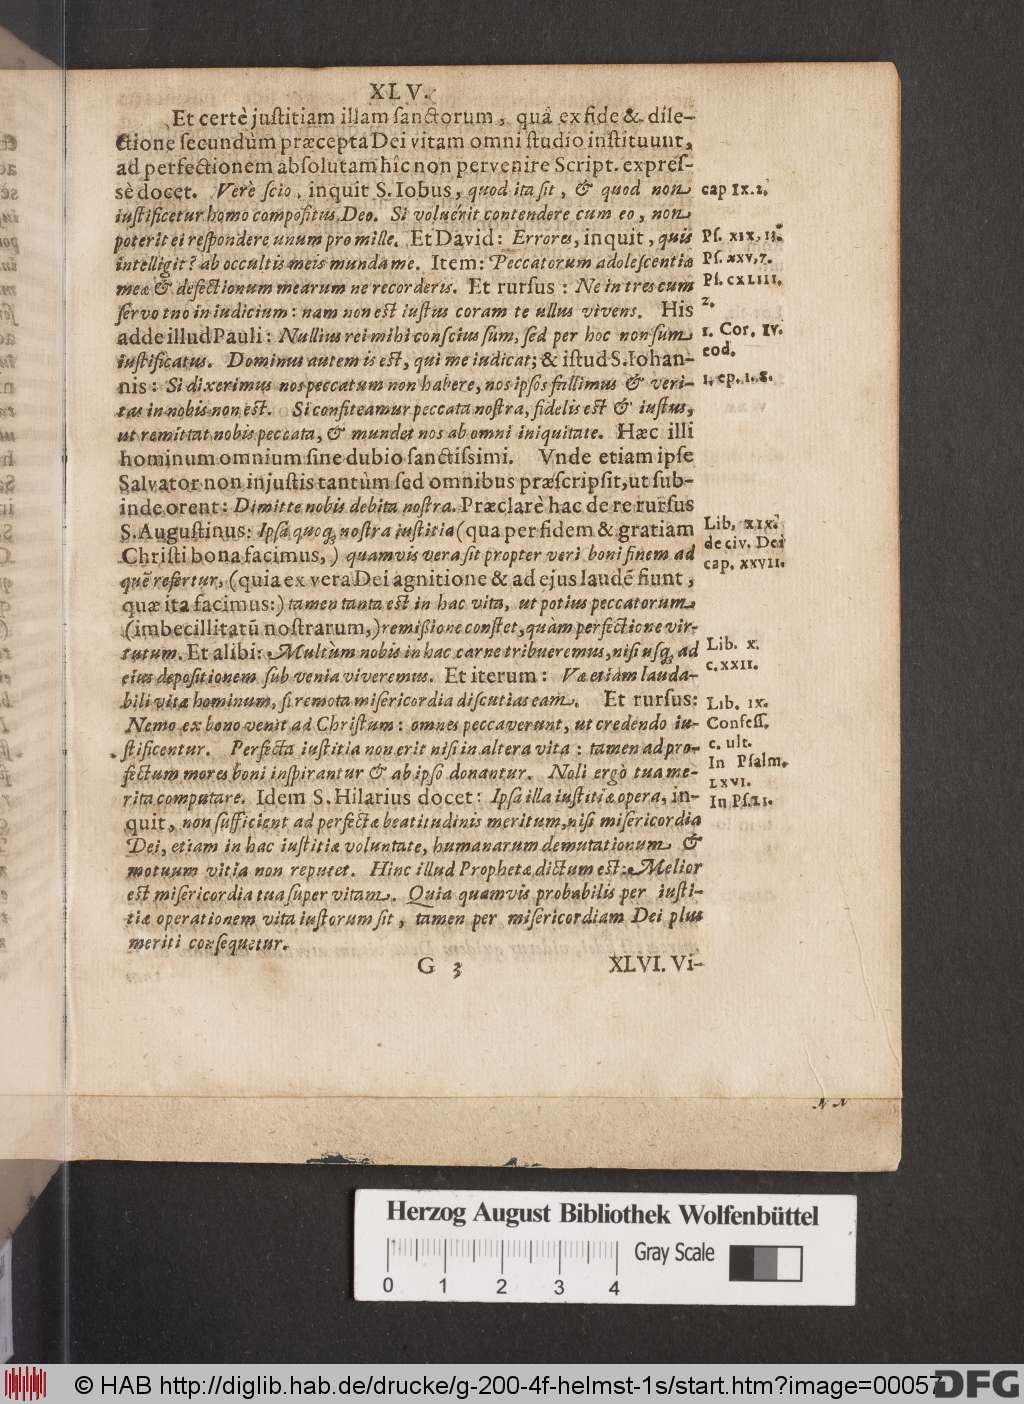 XLV.
Et certè justitiam illam sanctorum, quâ ex fide & dile-
ctione secundùm præcepta Dei vitam omni studio instituunt,
ad perfectionem absolutam hîc non pervenire Script. expres-
sè docet. Verè scio, inquit S. Iobus, quod ita sit, & quod non
iustificetur homo compositus Deo. Si voluerit contendere cum eo, non
poterit ei respondere unum pro mille. Et David: Errores, inquit, quis
intelligit? ab occultis meis munda me. Item: Peccatorum adolescentiæ
meæ & defectionum mearum ne recorderis. Et rursus: Ne intres cum
servo tuo in iudicium: nam non est iustus coram te ullus vivens. His
adde illud Pauli: Nullius rei mihi conscius sum, sed per hoc non sum
iustificatus. Dominus autem is est, qui me iudicat; & istud S. Iohan-
nis: Si dixerimus nos peccatum non habere, nos ipsos fallimus & veri-
tas in nobis non est. Si confiteamur peccata nostra, fidelis est & iustus,
ut remittat nobis peccata, & mundet nos ab omni iniquitate. Hæc illi
hominum omnium sine dubio sanctissimi. Vnde etiam ipse
Salvator non injustis tantùm sed omnibus præscripsit, ut sub-
inde orent: Dimitte nobis debita nostra. Præclarè hac de re rursus
S. Augustinus: Ipsa quoq; nostra iustitia (qua per fidem & gratiam
Christi bona facimus,) quamvis vera sit propter veri boni finem ad
quẽ refertur, (quia ex vera Dei agnitione & ad ejus laudẽ fiunt,
quæ ita facimus:) tamen tanta est in hac vita, ut potius peccatorum
(imbecillitatũ nostrarum,) remißione constet, quàm perfectione vir-
tutum. Et alibi: Multum nobis in hac carne tribueremus, nisi usq; ad
eius depositionem sub venia viveremus. Et iterum: Væ etiam lauda-
bili vitæ hominum, si remota misericordia discutias eam. Et rursus:
Nemo ex bono venit ad Christum: omnes peccaverunt, ut credendo iu-
stificentur. Perfecta iustitia non erit nisi in altera vita: tamen ad pro-
fectum mores boni inspirantur & ab ipso donantur. Noli ergò tua me-
rita computare. Idem S. Hilarius docet: Ipsa illa iustitiæ opera, in-
quit, non sufficient ad perfectæ beatitudinis meritum, nisi misericordia
Dei, etiam in hac iustitiæ voluntate, humanarum demutationum &
motuum vitia non reputet. Hinc illud Prophetæ dictum est: Melior
est misericordia tua super vitam. Quia quamvis probabilis per iusti-
tiæ operationem vita iustorum sit, tamen per misericordiam Dei plus
meriti consequetur.
G 3 XLVI. Vi-
cap Ix. 2.
Ps. XIX, 13.
Ps. XXV, 7.
Ps. CXLIII,
2.
1. Cor. IV.
eod.
1. ep. 1. 8.
Lib. XIX.
de civ. Dei
cap. XXVII.
Lib. X.
c. XXII.
Lib. IX.
Confess.
c. ult.
In Psalm.
LXVI.
In Ps. 21.
Herzog August Bibliothek Wolfenbüttel
Gray Scale
0 1 2 3 4
© HAB http://diglib.hab.de/drucke/g-200-4f-helmst-1s/start.htm?image=00057
DFG